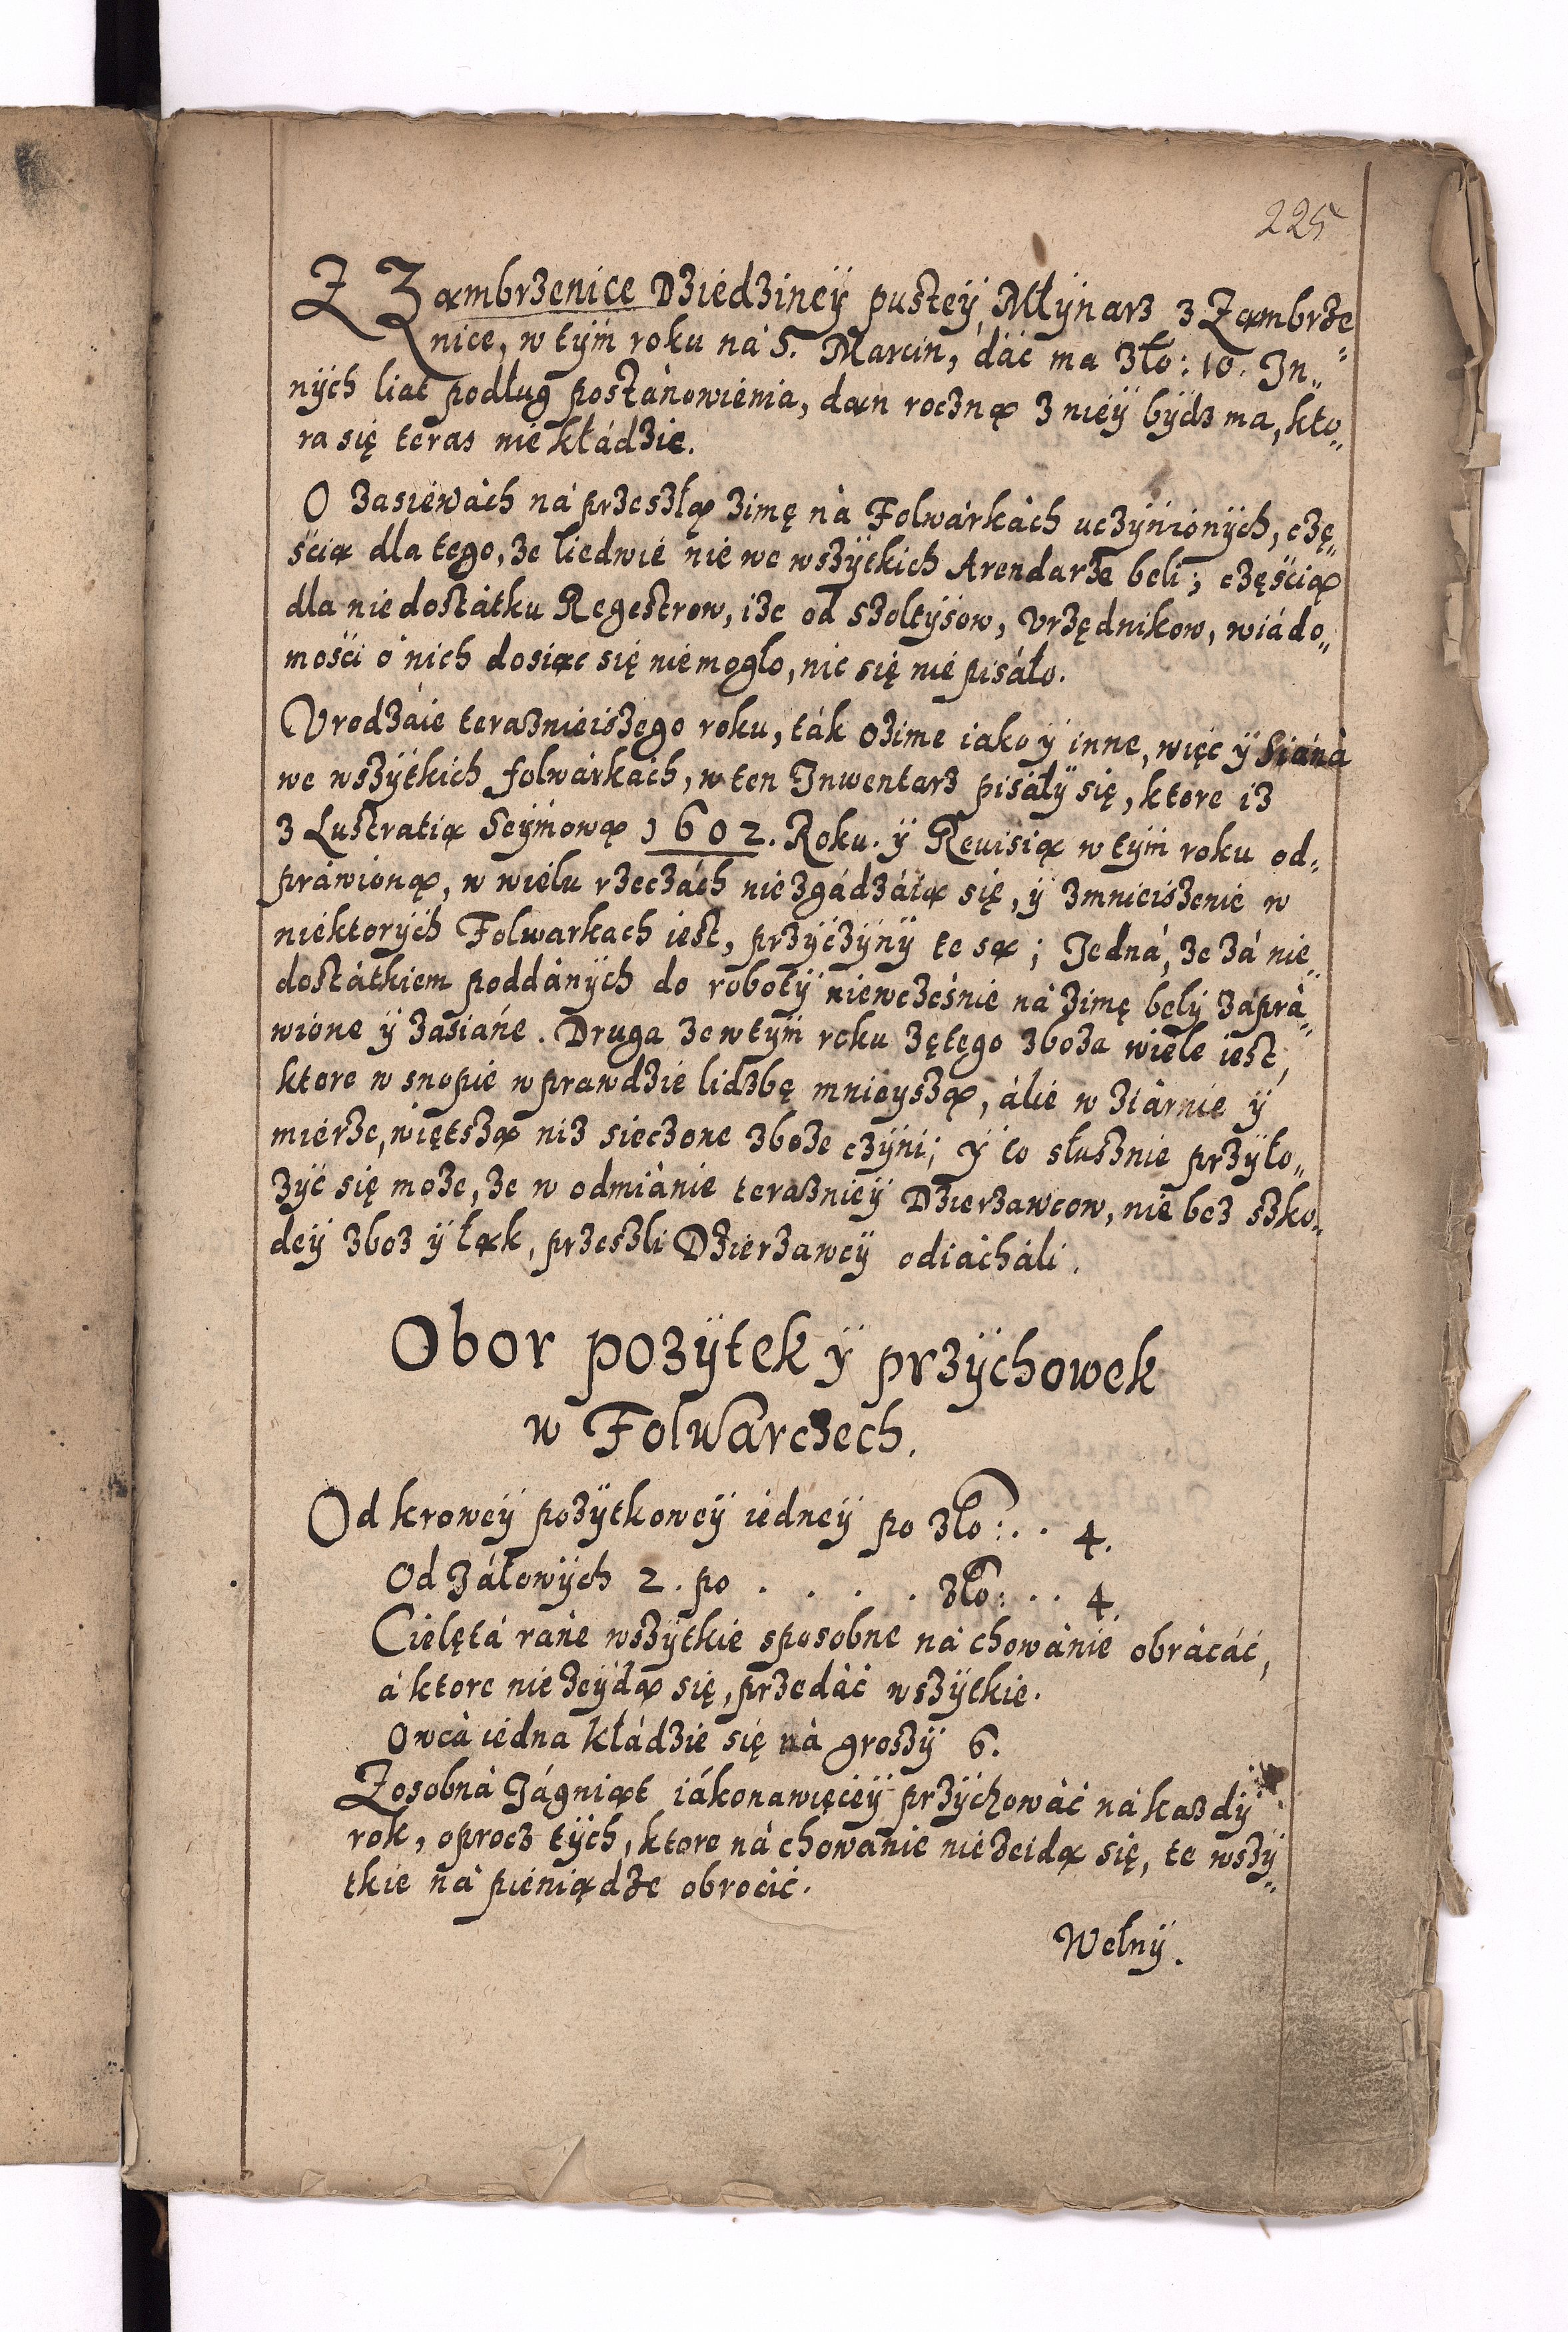 225
Z Zambrzenice Dziedziney pustey, Młynarz z Zambrze„
nice, w tym roku ná S. Marcin, dáć ma Zło: 10. In„
nych liat podług postánowienia, dan roczną z niey bydz ma, kto„
ra się teras nie kłádzie.
O Zasiewách ná przeszłą zimę ná Folwárkách uczynionych, czę„
ścią dla tego, że liedwie nie we wszytkich Arendarze beli; częścią
dla niedostátku Regestrow, iże od szoltysow, Vrzędnikow, wiádo„
mości o nich dosiąc się niemogło, nic się nie pisáło.
Vrodzáie teraznieiszego roku, ták ozime iako y inne, więc y Siáná
we wszytkich folwárkách, w ten Inwentarz pisáły się, ktore iz
z Lustratią Seymową 1602. Roku. y Reuisią w tym roku od„
práwioną, w wielu rzeczách nie zgádzáią się, y zmnieiszenie w
niektorych Folwarkach iest, przyczyny te są; Jedná, że zá nie„
dostátkiem poddánych do roboty niewcześnie ná zimę bely záprá„
wione y zasiáne. Druga że w tym roku zętego zboza wiele iest,
ktore w snopie w prawdzie lidzbę mnieyszą, álie w ziárnie y
mierze, więtszą niz sieczone zboże czyni; y to słusznie przyło„
zyć się może, że w odmiánie terazniey Dzierzawcow, nie bez szko„
dey zboz y łąk, przeszli Dzierzawcy odiácháli.
Obor pozytek y przychowek
w Folwarczech.
Od krowey pozytkowey iedney po zło: . . 4.
Od Záłowych 2. po . . . . zło: . . 4
Cielętá ráne wszytkie sposobne ná chowánie obrácáć,
á ktore nie zeydą się, przedáć wszytkie.
Owcá iedna kłádzie się ná groszy 6.
Zosobná Jágniąt iákonawięcey przychowáć ná kazdy
rok, oprocz tych, ktore ná chowanie nie zeidą się, te wszy„
tkie ná pieniądze obrocić.
Wełny.